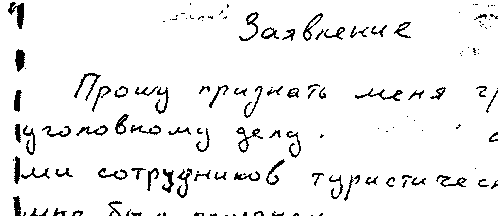 Заявление
Прошу признать меня гр
уголовному делу.
ми сотрудников туристическ